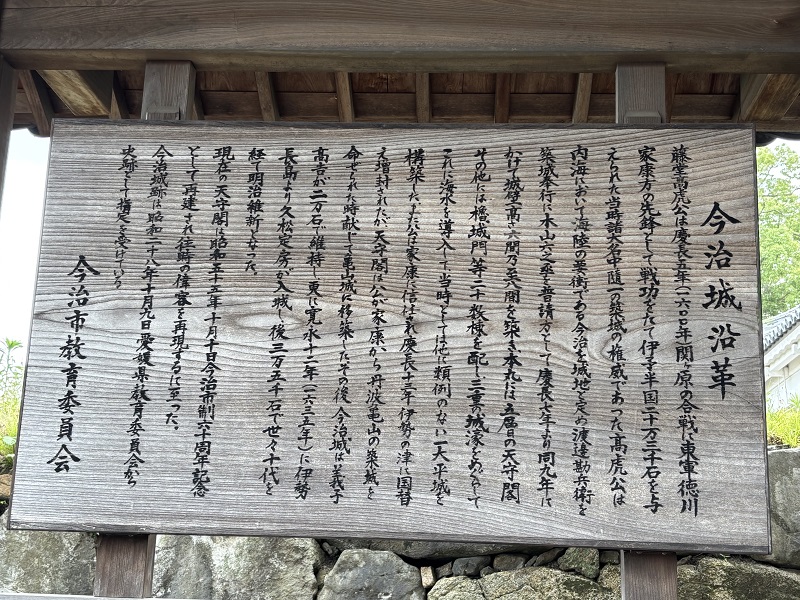 今治城沿革
藤堂高虎公は慶長五年(一六〇〇年)関ヶ原の合戦に東軍徳川
家康方の先鋒として戦功をたて伊予半国二十万三千石を与
えられた当時諸大名中随一の築城の権威であった高虎公は
内海において海陸の要衝である今治を城地と定め渡辺勘兵衛を
築城奉行に木山六之丞を普請方として慶長七年より同九年に
かけて城壁の高さ六間乃至八間を築き本丸には五層の天守閣
その他には櫓城門等二十数棟を配し三重の城濠をめぐらせて
これに海水を導入した当時としては他に類例のない一大平城を
構築した。たかとらは家康に信任され慶長十三年伊勢の津に国替
え増封されたが天守閣は公が家康から丹波亀山の築城を
命ぜられた時献上して亀山城に移築したその後今治城は義子
高吉が二万石で維持し更に寛永十二年(一六三五年)に伊勢
長島より久松定房が入城し後三万五千石で世々十代を
経て明治維新となった。
現在の天守閣は昭和五十五年十月十日今治市制六十周年記念
として再建され往時の偉容を再現するに至った。
今治城跡は昭和二十八年十月九日愛媛県教育委員会から
史跡として指定を受けている
今治市教育委員会